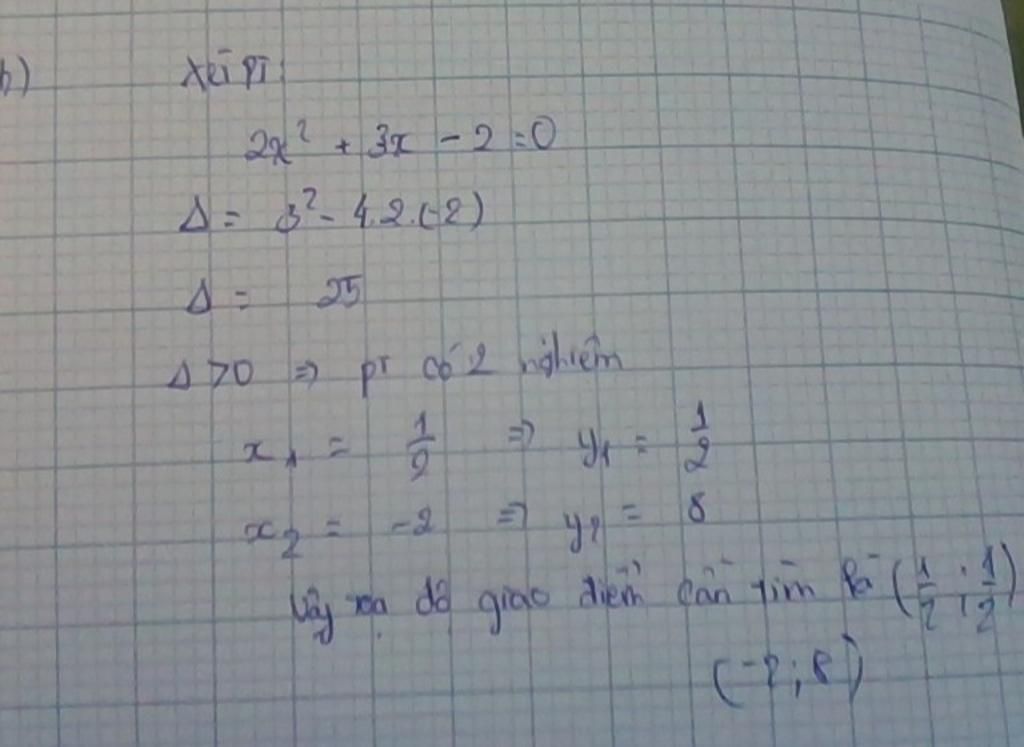 b) Xét PT:
2x² + 3x - 2 = 0
Δ = 3² - 4.2.(-2)
Δ = 25
Δ > 0 ⇒ pt có 2 nghiệm
x₁ = 1/2 ⇒ y₁ = 1/2
x₂ = -2 ⇒ y₂ = 8
Vậy toạ độ giao điểm cần tìm là (1/2 ; 1/2)
(-2 ; 8)